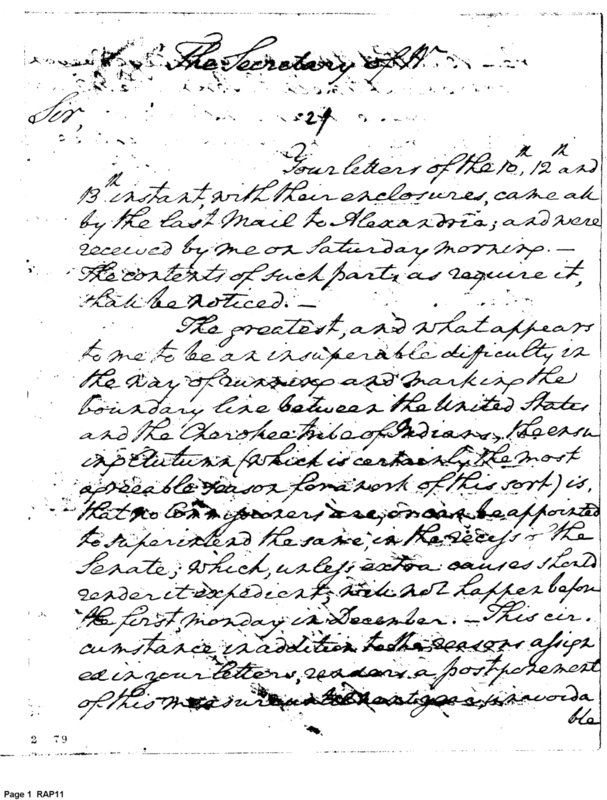 The Secretary of W
Sir, 29
Your letters of the 10th, 12th and
13th instant, with their enclosures, came all
by the last Mail to Alexandria; and were
received by me on Saturday morning. —
The contents of such parts, as require it,
shall be noticed. —
The greatest, and what appears
to me to be an insuperable difficulty in
the way of running and marking the
boundary line between the United States
and the Cherokee tribe of Indians, the ensu
ing Autumn (which is certainly the most
agreeable season for a work of this sort) is,
that no Commissioners are, or can be appointed
to superintend the same, in the recess of the
Senate; which, unless extra causes should
render it expedient, will not happen before
the first monday in December. — This cir.
cumstance in addition to the reasons assign
ed in your letters, renders a postponement
of this measure until next year, unavoida
ble
2 79
Page 1 RAP11